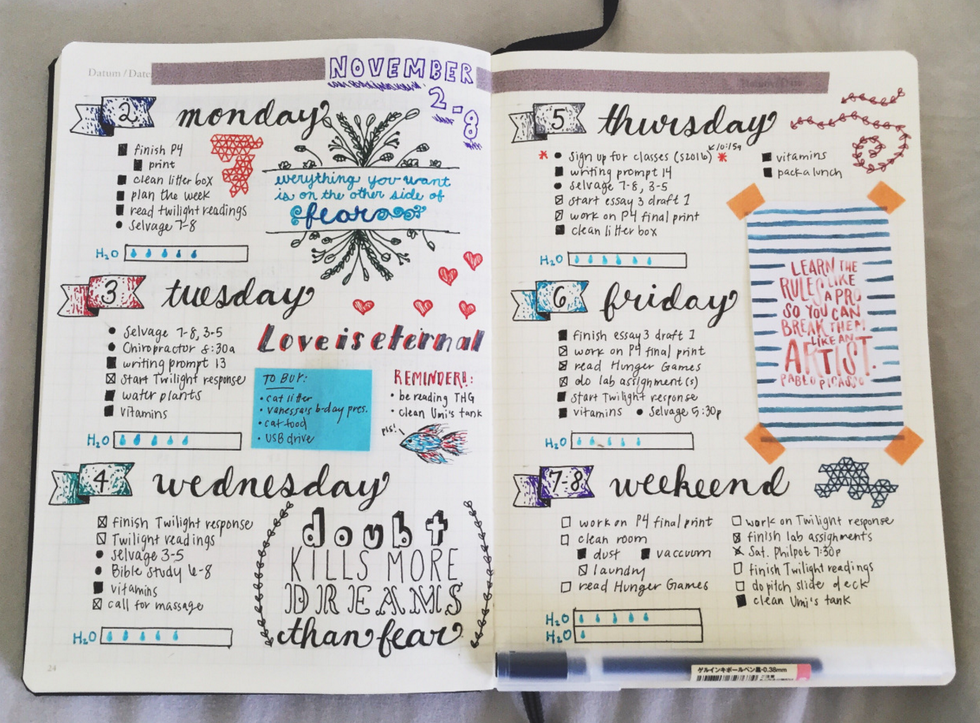 Datum / Date
NOVEMBER
2-8
2 monday
finish P4
print
clean litter box
plan the week
read twilight readings
Selvage 7-8
H₂O
everything you want
is on the other side of
fear
3 tuesday
Selvage 7-8, 3-5
Chiropractor 8:30a
writing prompt 13
Start Twilight response
water plants
vitamins
H₂O
Love is eternal
TO BUY:
• cat litter
• vanessa's b-day pres.
• cat food
• USB drive
REMINDER!:
• be reading THG
• clean Umi's tank
pls!
4 wednesday
finish Twilight response
Twilight readings
Selvage 3-5
Bible Study 6-8
vitamins
call for massage
H₂O
doubt
KILLS MORE
DREAMS
than fear
24
5 thursday
Sign up for classes (S2016)
writing prompt 14
Selvage 7-8, 3-5
Start essay 3 draft 1
work on P4 final print
clean litter box
vitamins
pack a lunch
H₂O
LEARN THE
RULES LIKE
A PRO
SO YOU CAN
BREAK THEM
LIKE AN
ARTIST.
PABLO PICASSO
6 friday
finish essay 3 draft 1
work on P4 final print
read Hunger Games
do lab assignment(s)
start Twilight response
vitamins • Selvage 5:30p
H₂O
7-8 weekend
work on P4 final print
clean room
dust vaccuum
laundry
read Hunger Games
work on Twilight response
finish lab assignments
Sat. Philpot 7:30p
finish Twilight readings
do pitch slide deck
clean Umi's tank
H₂O
H₂O
ゲルインキボールペン黒・0.38mm